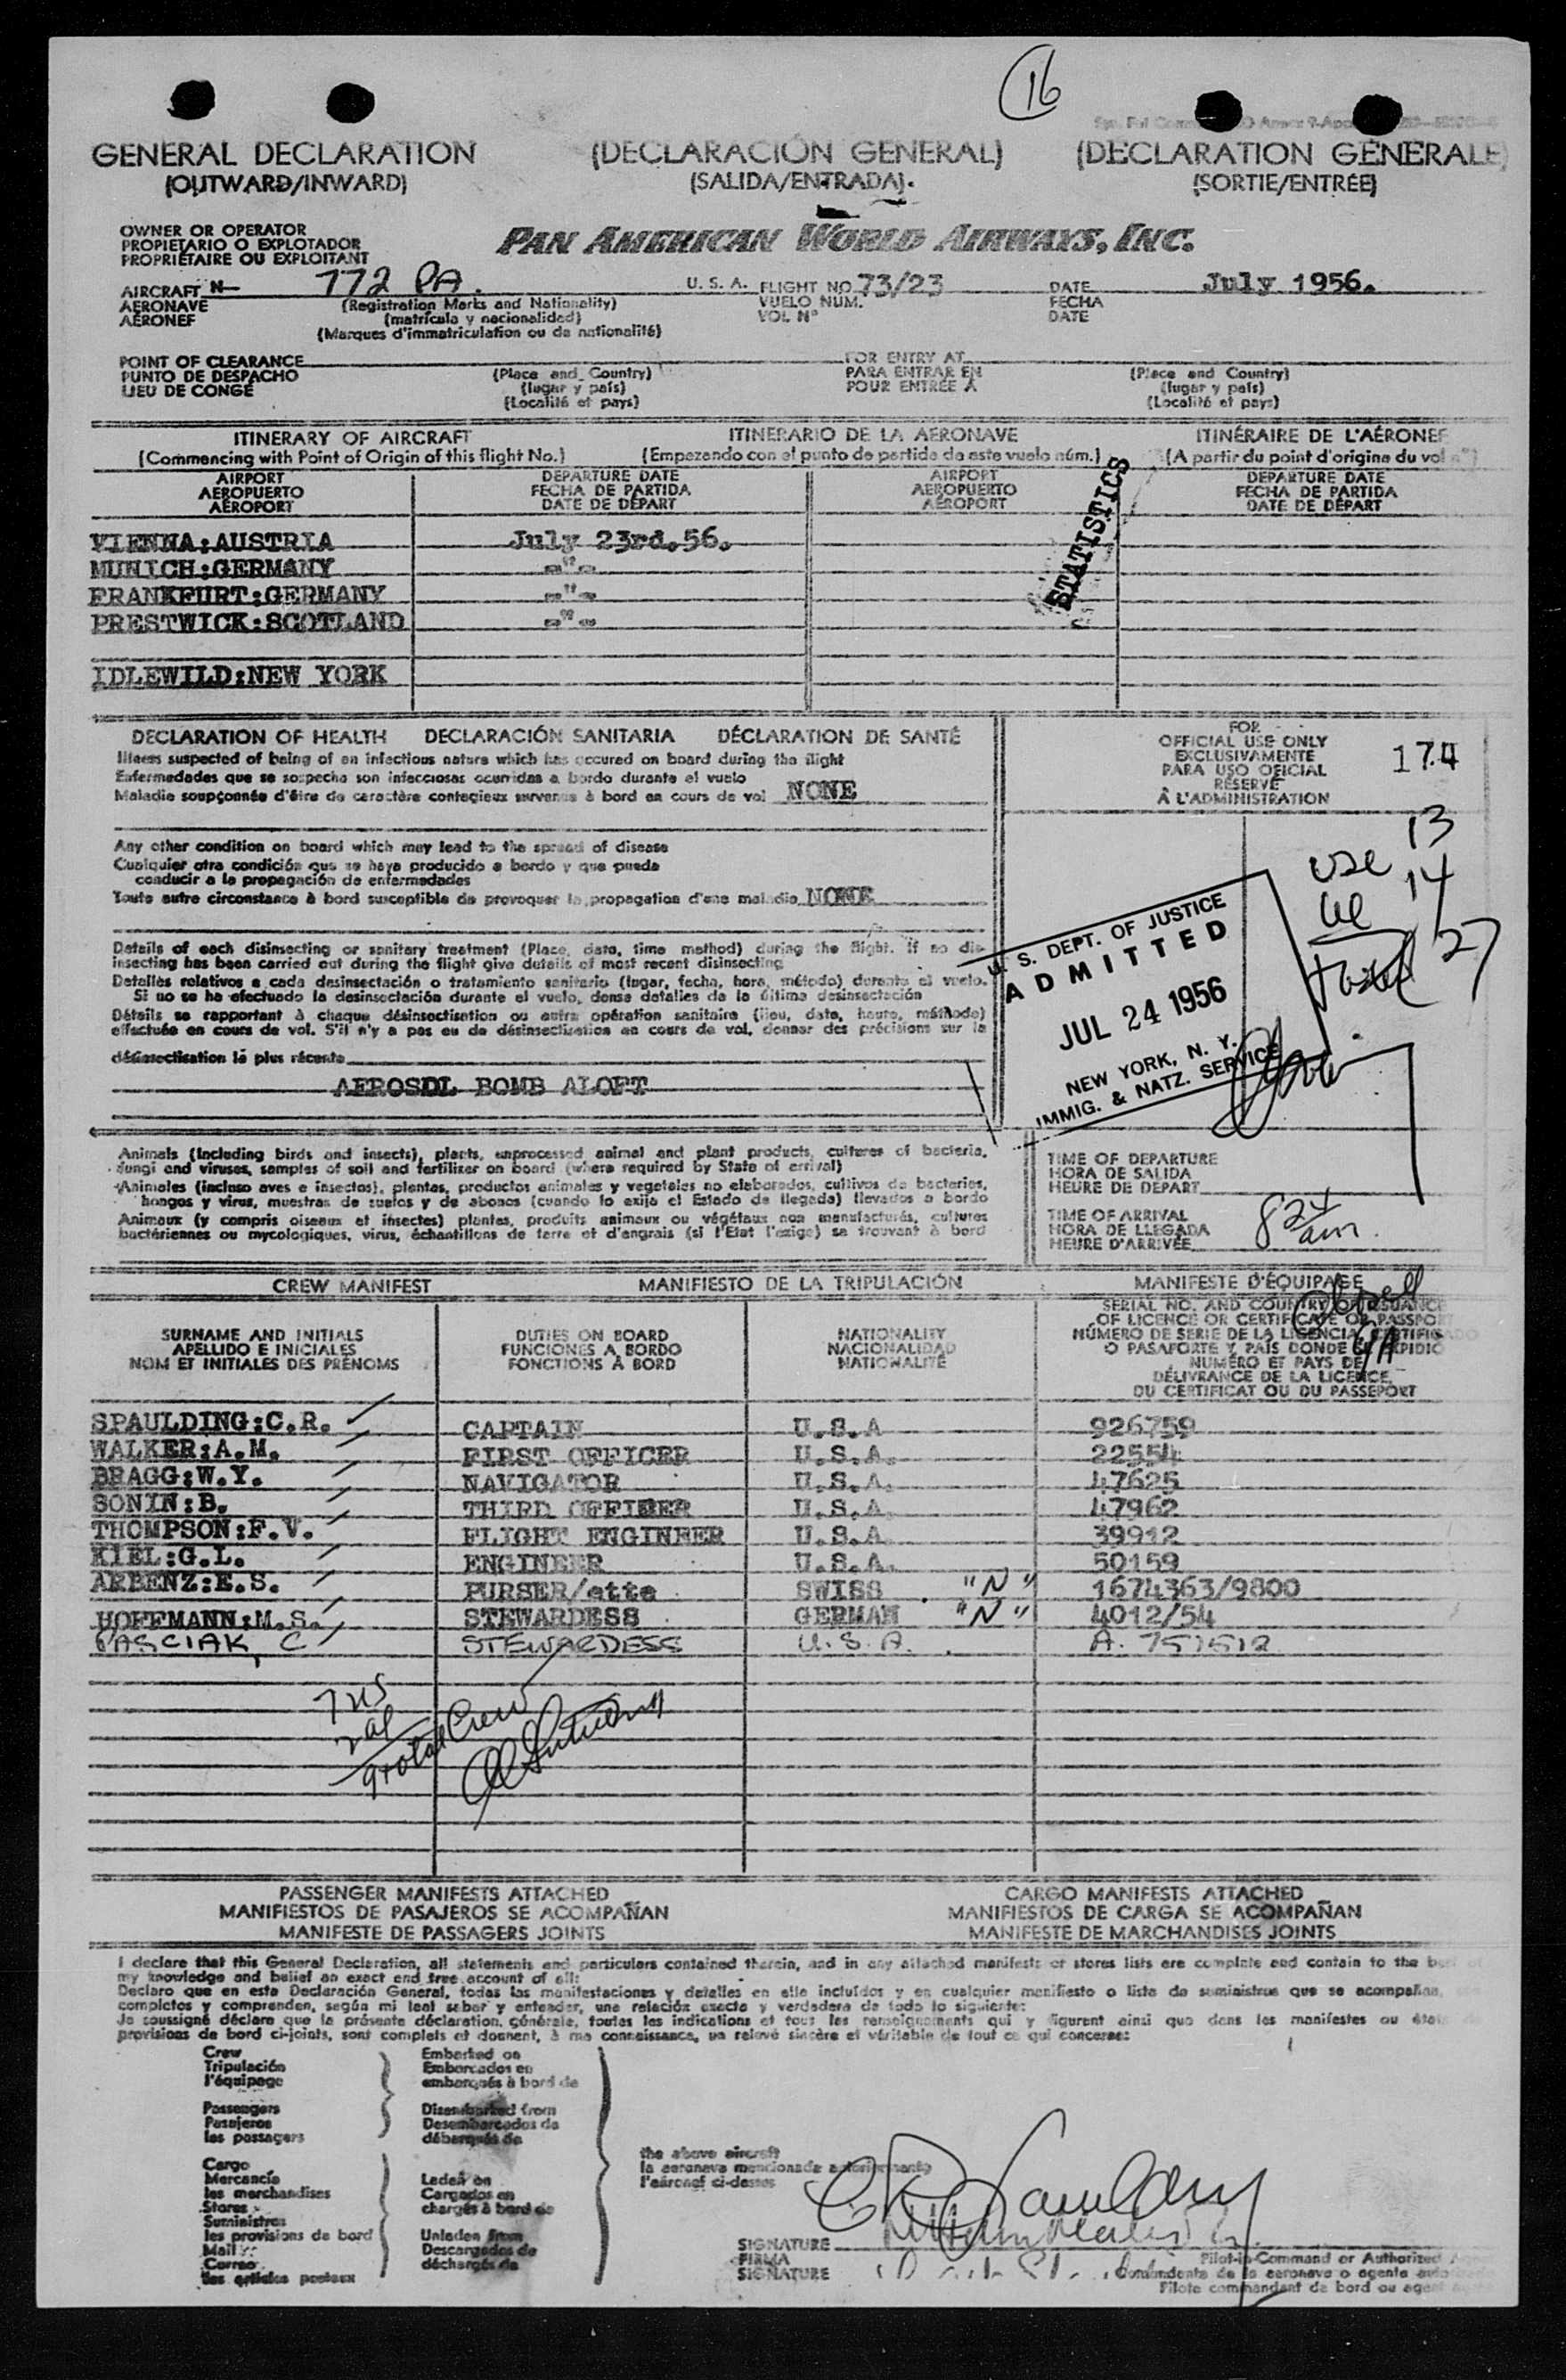 16
GENERAL DECLARATION (DECLARACIÓN GENERAL) (DECLARATION GÉNÉRALE)
(OUTWARD/INWARD) (SALIDA/ENTRADA). (SORTIE/ENTRÉE)
OWNER OR OPERATOR
PROPIETARIO O EXPLOTADOR
PROPRIÉTAIRE OU EXPLOITANT
PAN AMERICAN WORLD AIRWAYS, INC.
AIRCRAFT N- 772 PA. U. S. A. FLIGHT NO. 73/23 DATE July 1956.
AERONAVE (Registration Marks and Nationality) VUELO NUM. FECHA
AÉRONEF (matrícula y nacionalidad) VOL Nº DATE
(Marques d'immatriculation ou de nationalité)
POINT OF CLEARANCE FOR ENTRY AT
PUNTO DE DESPACHO (Place and Country) PARA ENTRAR EN (Place and Country)
LIEU DE CONGÉ (lugar y país) POUR ENTRÉE À (lugar y país)
(Localité et pays) (Localité et pays)
ITINERARY OF AIRCRAFT ITINERARIO DE LA AERONAVE ITINÉRAIRE DE L'AÉRONEF
(Commencing with Point of Origin of this flight No.) (Empezando con el punto de partida de este vuelo núm.) (A partir du point d'origine du vol n°)
AIRPORT DEPARTURE DATE AIRPORT DEPARTURE DATE
AEROPUERTO FECHA DE PARTIDA AEROPUERTO FECHA DE PARTIDA
AÉROPORT DATE DE DÉPART AÉROPORT DATE DE DÉPART
STATISTICS
VIENNA:AUSTRIA July 23rd.56.
MUNICH:GERMANY -"-
FRANKFURT:GERMANY -"-
PRESTWICK:SCOTLAND -"-
IDLEWILD:NEW YORK
DECLARATION OF HEALTH DECLARACIÓN SANITARIA DÉCLARATION DE SANTÉ
Illness suspected of being of an infectious nature which has occured on board during the flight
Enfermedades que se sospecha son infecciosas ocurridas a bordo durante el vuelo
Maladie soupçonnée d'être de caractère contagieux survenus à bord en cours de vol NONE
Any other condition on board which may lead to the spread of disease
Cualquier otra condición que se haya producido a bordo y que pueda
conducir a la propagación de enfermedades
Toute autre circonstance à bord susceptible de provoquer la propagation d'une maladie NONE
Details of each disinsecting or sanitary treatment (Place, date, time method) during the flight. If no dis-
insecting has been carried out during the flight give details of most recent disinsecting
Detalles relativos a cada desinsectación o tratamiento sanitario (lugar, fecha, hora, método) durante el vuelo.
Si no se ha efectuado la desinsectación durante el vuelo, dense detalles de la última desinsectación
Détails se rapportant à chaque désinsectisation ou autre opération sanitaire (lieu, date, heure, méthode)
effectuée en cours de vol. S'il n'y a pas eu de désinsectisation en cours de vol, donner des précisions sur la
désinsectisation la plus récente
AEROSOL BOMB ALOFT
FOR
OFFICIAL USE ONLY
EXCLUSIVAMENTE
PARA USO OFICIAL
RÉSERVÉ
À L'ADMINISTRATION
174
13
14
27
U. S. DEPT. OF JUSTICE
ADMITTED
JUL 24 1956
NEW YORK, N. Y.
IMMIG. & NATZ. SERVICE
Animals (including birds and insects), plants, unprocessed animal and plant products, cultures of bacteria,
fungi and viruses, samples of soil and fertilizer on board (where required by State of arrival)
Animales (incluso aves e insectos), plantas, productos animales y vegetales no elaborados, cultivos de bacterias,
hongos y virus, muestras de suelos y de abonos (cuando lo exija el Estado de llegada) llevados a bordo
Animaux (y compris oiseaux et insectes) plantes, produits animaux ou végétaux non manufacturés, cultures
bactériennes ou mycologiques, virus, échantillons de terre et d'engrais (si l'Etat l'exige) se trouvant à bord
TIME OF DEPARTURE
HORA DE SALIDA
HEURE DE DÉPART
TIME OF ARRIVAL
HORA DE LLEGADA 824 am.
HEURE D'ARRIVÉE
CREW MANIFEST MANIFIESTO DE LA TRIPULACIÓN MANIFESTE D'ÉQUIPAGE
SURNAME AND INITIALS
APELLIDO E INICIALES
NOM ET INITIALES DES PRÉNOMS
DUTIES ON BOARD
FUNCIONES A BORDO
FONCTIONS À BORD
NATIONALITY
NACIONALIDAD
NATIONALITÉ
SERIAL NO. AND COUNTRY OF ISSUANCE
OF LICENCE OR CERTIFICATE OR PASSPORT
NÚMERO DE SERIE DE LA LICENCIA, CERTIFICADO
O PASAPORTE Y PAÍS DONDE SE EXPIDIO
NUMÉRO ET PAYS DE
DÉLIVRANCE DE LA LICENCE,
DU CERTIFICAT OU DU PASSEPORT
SPAULDING:C.R. CAPTAIN U.S.A 926759
WALKER:A.M. FIRST OFFICER U.S.A. 22554
BRAGG:W.Y. NAVIGATOR U.S.A. 47625
SONIN:B. THIRD OFFICER U.S.A. 47962
THOMPSON:F.V. FLIGHT ENGINEER U.S.A. 39912
KIEL:G.L. ENGINEER U.S.A. 50159
ARBENZ:E.S. PURSER/ette SWISS "N" 1674363/9800
HOFFMANN:M.S. STEWARDESS GERMAN "N" 4012/54
PASCIAK, C STEWARDESS U.S.A. A. 751512
7 us
2 al
9 total Crew
PASSENGER MANIFESTS ATTACHED CARGO MANIFESTS ATTACHED
MANIFIESTOS DE PASAJEROS SE ACOMPAÑAN MANIFIESTOS DE CARGA SE ACOMPAÑAN
MANIFESTE DE PASSAGERS JOINTS MANIFESTE DE MARCHANDISES JOINTS
I declare that this General Declaration, all statements and particulars contained therein, and in any attached manifests or stores lists are complete and contain to the best of
my knowledge and belief an exact and true account of all:
Declaro que en esta Declaración General, todas las manifestaciones y detalles en ella incluídos y en cualquier manifiesto o lista de suministros que se acompañan,
completos y comprenden, según mi leal saber y entender, una relación exacta y verdadera de todo lo siguiente:
Je soussigné déclare que la présente déclaration, générale, toutes les indications et tous les renseignements qui y figurent ainsi que dans les manifestes ou états de
provisions de bord ci-joints, sont complets et donnent, à ma connaissance, un relevé sincère et véritable de tout ce qui concerne:
Crew Embarked on
Tripulación Embarcados en
l'équipage embarqués à bord de
Passengers Disembarked from
Pasajeros Desembarcados de
les passagers débarqués de
the above aircraft
la aeronave mencionada anteriormente
l'aéronef ci-dessus
Cargo
Mercancía Laden on
les marchandises Cargados en
Stores chargés à bord de
Suministros
les provisions de bord Unladen from
Mail Descargados de
Correo déchargés de
les articles postaux
SIGNATURE
FIRMA
SIGNATURE
Pilot-in-Command or Authorized
Comandante de la aeronave o agente
Pilote commandant de bord ou agent